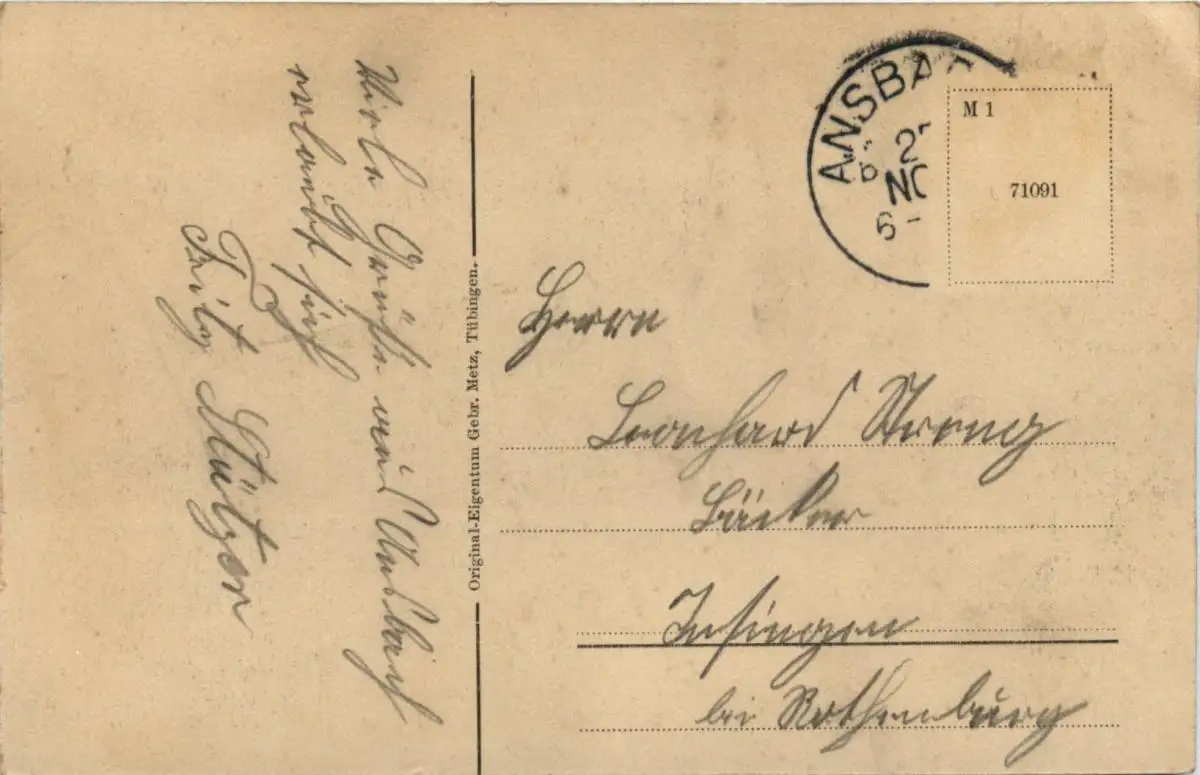 Viele Grüße aus Ansbach
erlaubt sich
Fritz Stützer
Original-Eigentum Gebr. Metz, Tübingen.
ANSBAC
27
NO
6-
M 1
71091
Herrn
Leonhard Streng
Bäcker
Insingen
bei Rothenburg